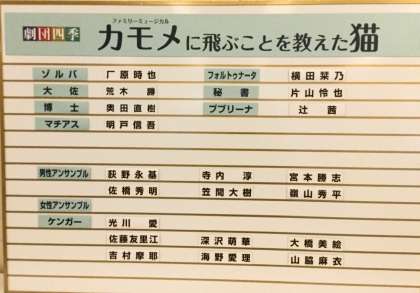 劇団四季
ファミリーミュージカル
カモメに飛ぶことを教えた猫
ゾルバ 厂原時也 フォルトゥナータ 横田栞乃
大佐 荒木勝 秘書 片山怜也
博士 奥田直樹 ブブリーナ 辻茜
マチアス 明戸信吾
男性アンサンブル 荻野永基 寺内淳 宮本勝志
佐橋秀明 笠間大樹 嶺山秀平
女性アンサンブル
ケンガー 光川愛
佐藤友里江 深沢萌華 大橋美絵
吉村摩耶 海野愛理 山脇麻衣